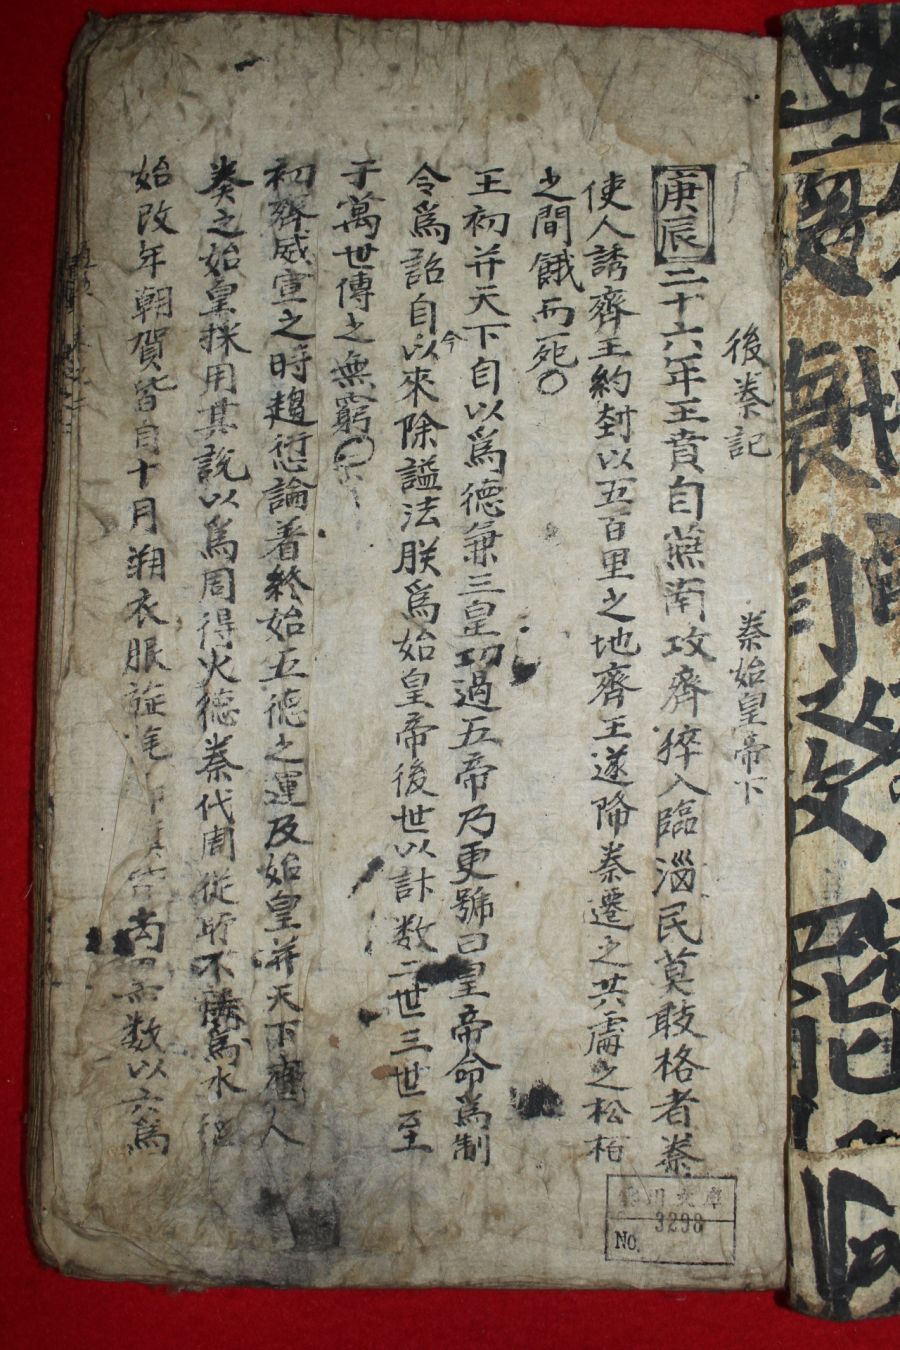 後秦記 秦始皇帝下
庚辰二十六年王賁自燕南攻齊猝入臨淄民莫敢格者秦
使人誘齊王約封以五百里之地齊王遂降秦遷之共處之松栢
之間餓而死〇
王初幷天下自以爲德兼三皇功過五帝乃更號曰皇帝命爲制
令爲詔自今以來除謚法朕爲始皇帝後世以計数二世三世至
于萬世傳之無窮〇
初齊威宣之時趨衍論着終始五德之運及始皇幷天下齊人
奏之始皇採用其說以爲周得火德秦代周從所不勝爲水德
始改年朝賀皆自十月朔衣服旌旄皆尙黑数以六爲
文庫
No. 3298